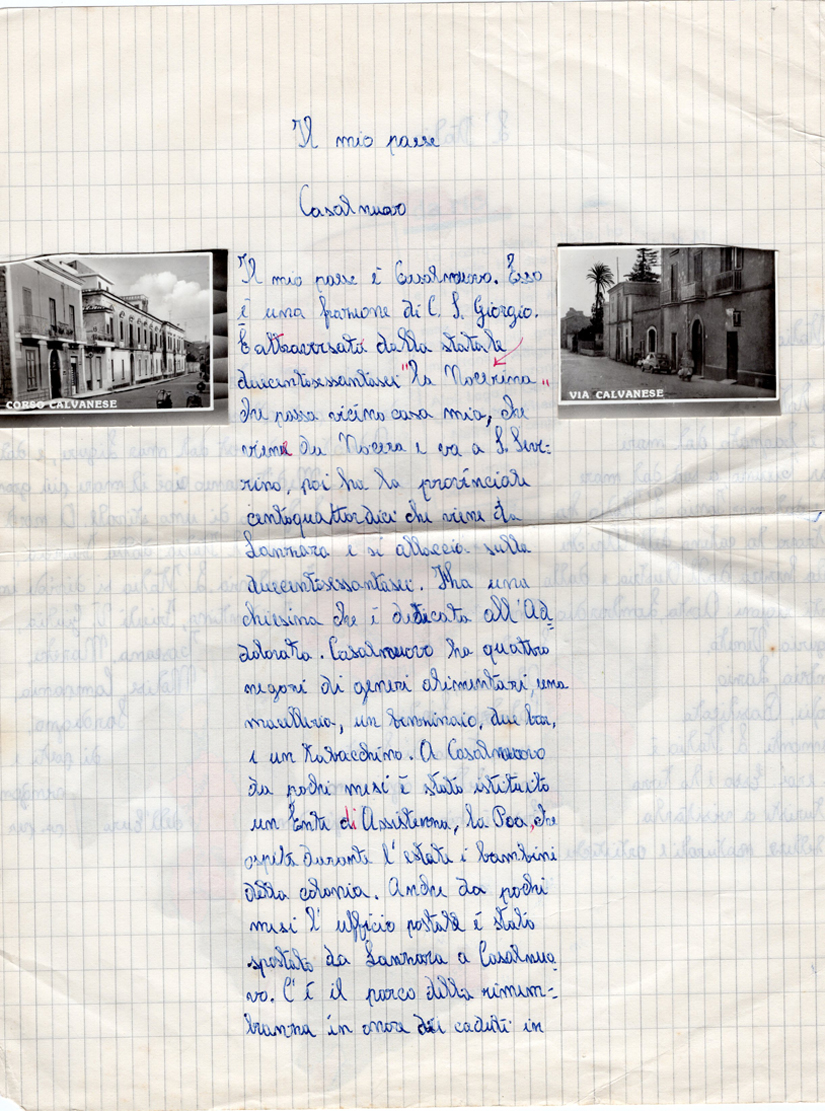 Il mio paese
Casalnuovo
Il mio paese è Casalnuovo. Esso
è una frazione di C. S. Giorgio.
È attraversato dalla statale
duecentosessantasei "la Nocerina"
che passa vicino casa mia, che
viene da Nocera e va a S. Seve-
rino, poi ha la provinciale
centoquattordici che viene da
Lanzara e si allaccia sulla
duecentosessantasei. Ha una
chiesina che è dedicata all'Ad-
dolorata. Casalnuovo ha quattro
negozi di generi alimentari, una
macelleria, un benzinaio, due bar,
e un tabacchino. A Casalnuovo
da pochi mesi è stato istituito
un Ente di Assistenza, la Poa, che
ospita durante l'estate i bambini
della colonia. Anche da pochi
mesi l'ufficio postale è stato
spostato da Lanzara a Casalnuo-
vo. C'è il parco della rimem-
branza in onore dei caduti in
CORSO CALVANESE
VIA CALVANESE